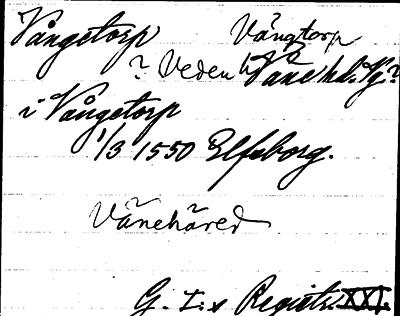 Vångetorp Vångtorp
? Veden h Väne hd. Vg.?
i Vångetorp
1/3 1550 Elfsborg.
Vänehäred
G. I:s Registr. XXI.